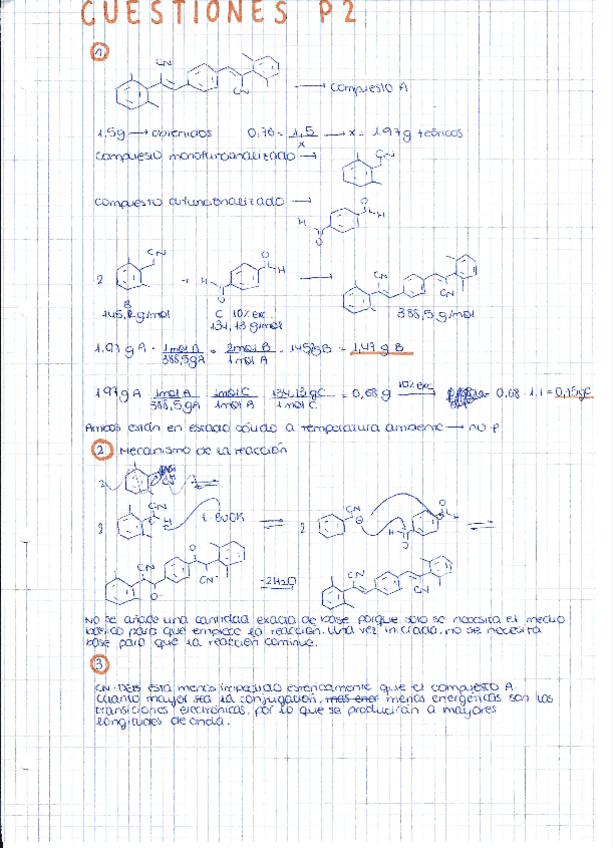 CUESTIONES P2
1.
CN
CN
→ compuesto A
1,5g → obtenidos 0,76 = 1,5 / x → x = 1,97g teóricos
compuesto monofuncionalizado →
CN
compuesto difuncionalizado →
H
O
O
H
2
CN
+
H
O
O
H
→
CN
CN
B
145,2 g/mol
C 10% exc.
134,13 g/mol
388,5 g/mol
1,97 gA · 1mol A / 388,5gA = 2mol B / 1mol A · 145,2gB = 1,47 g B
1,97 gA 1mol A / 388,5gA 1mol C / 1mol A 134,13 gC / 1mol C = 0,68 g 10% exc → 0,68 · 1.1 = 0,75gC
Ambos están en estado sólido a temperatura ambiente → no ρ
2 Mecanismo de la reacción
2
2
CN
H
t-BuOK
2
CN
⊖
H
O
O
CN
O
CN
O-
-2H2O
CN
CN
No se añade una cantidad exacta de base porque solo se necesita el medio
básico para que empiece la reacción. Una vez iniciada, no se necesita
base para que la reacción continúe.
3
está menos impedido estéricamente que el compuesto A.
Cuanto mayor sea la conjugación, menos energéticas son las
transiciones electrónicas, por lo que se producirán a mayores
longitudes de onda.